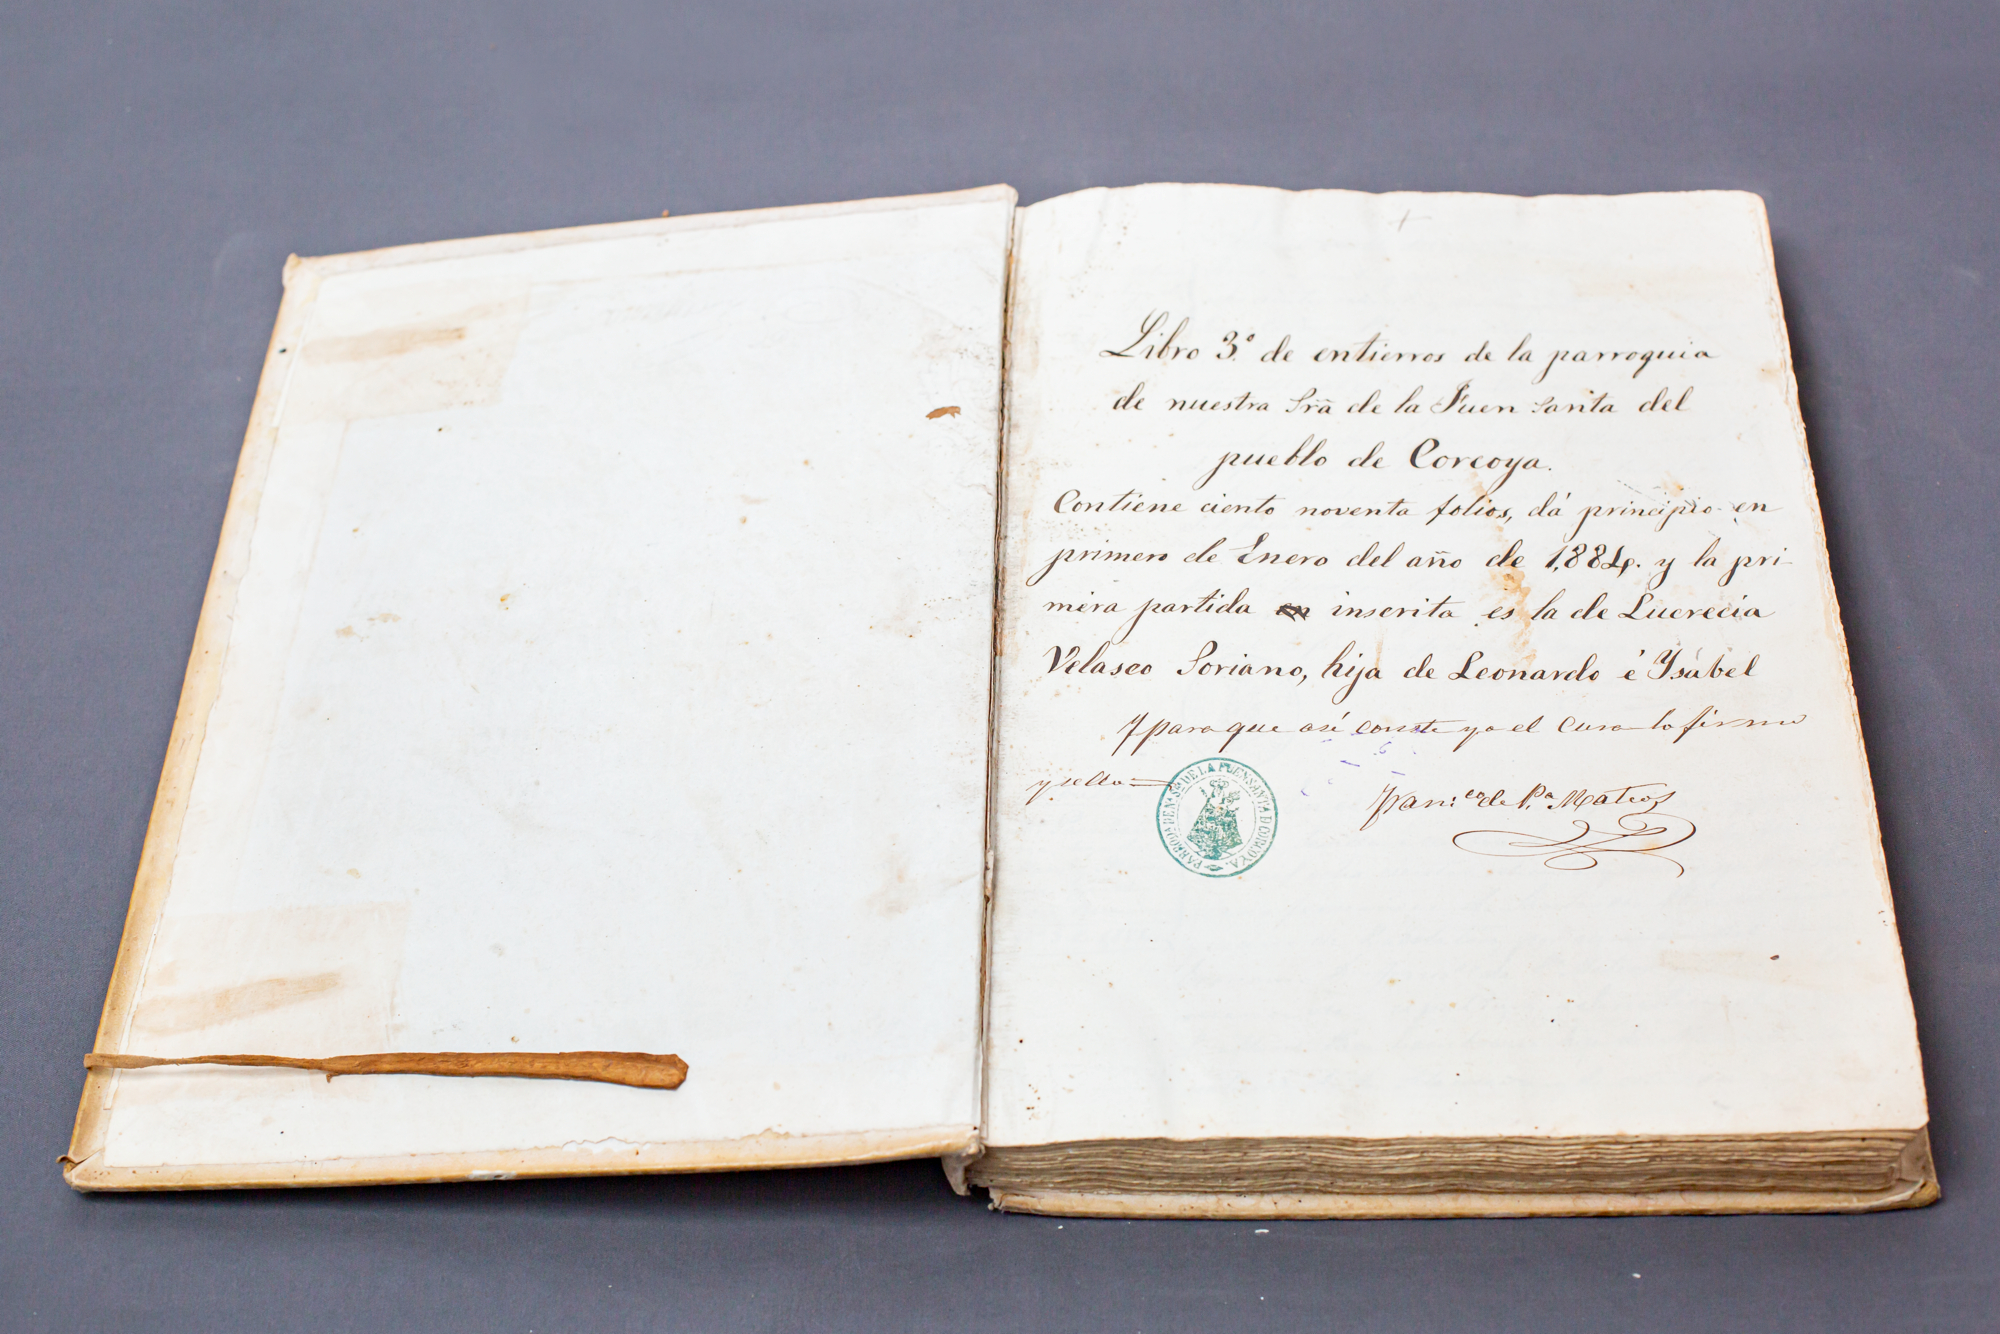 Libro 3.º de entierros de la parroquia
de nuestra Srã de la Fuen Santa del
pueblo de Corcoya.
Contiene ciento noventa folios, dá principio en
primero de Enero del año de 1,884. y la pri-
mera partida en inscrita es la de Lucrecia
Velasco Soriano, hija de Leonardo é Ysabel
Y para que así conste yo el Cura lo firmo
y sello =
Fran.co de P.a Mateos
PARROQA DE Na Sa DE LA FUENSANTA D CORCOYA.